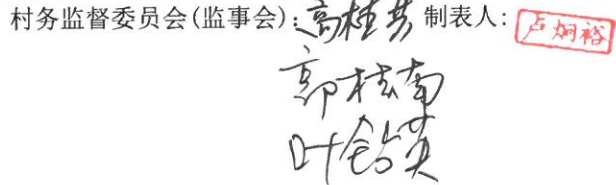 村务监督委员会(监事会):高桂芳 制表人:卢炯裕
郭桂南
叶钻英